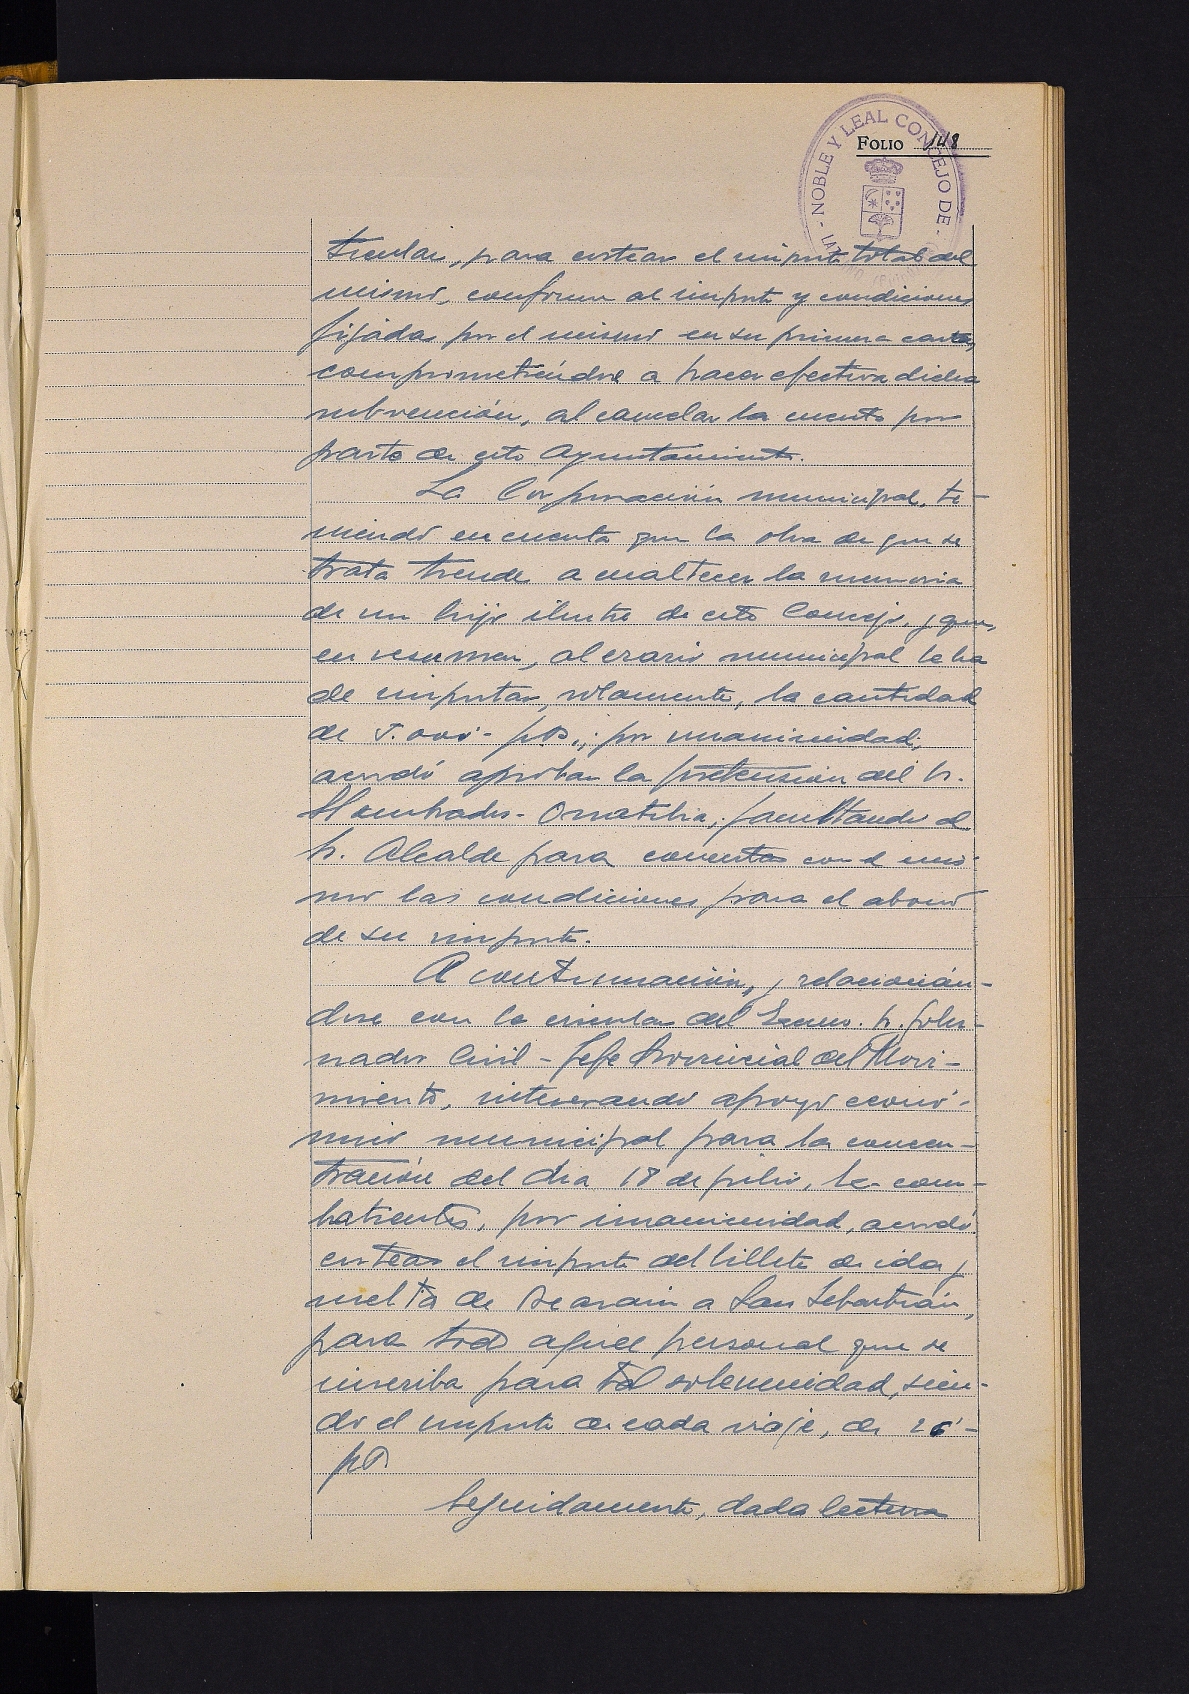 NOBLE Y LEAL CONCEJO DE
FOLIO 148
ticular, para costear el importe total del
mismo, conforme al importe y condiciones
fijadas por el mismo en su primera carta,
comprometiéndose a hacer efectiva dicha
subvención, al cancelar la cuenta por
parte de este Ayuntamiento.
La Corporación municipal, te-
niendo en cuenta que la obra de que se
trata tiende a enaltecer la memoria
de un hijo ilustre de este Concejo, y que,
en resumen, al erario municipal le ha
de importar, solamente, la cantidad
de 5.000- pts., por unanimidad,
acordó aprobar la pretensión del Sr.
facultando al
Sr. Alcalde para concertar con el mis-
mo las condiciones para el abono
de su importe.
A continuación, y relacionán-
dose con la circular del Excmo. Sr. Gober-
nador Civil-Jefe Provincial del Movi-
miento, interesando apoyo econó-
mico municipal para la concen-
tración del día 18 de julio, de com-
batientes, por unanimidad, acordó
costear el importe del billete de ida y
vuelta de Beasain a San Sebastián,
para todo aquel personal que se
inscriba para tal solemnidad, sien-
do el importe de cada viaje, de 26'-
pts
Seguidamente, dada lectura